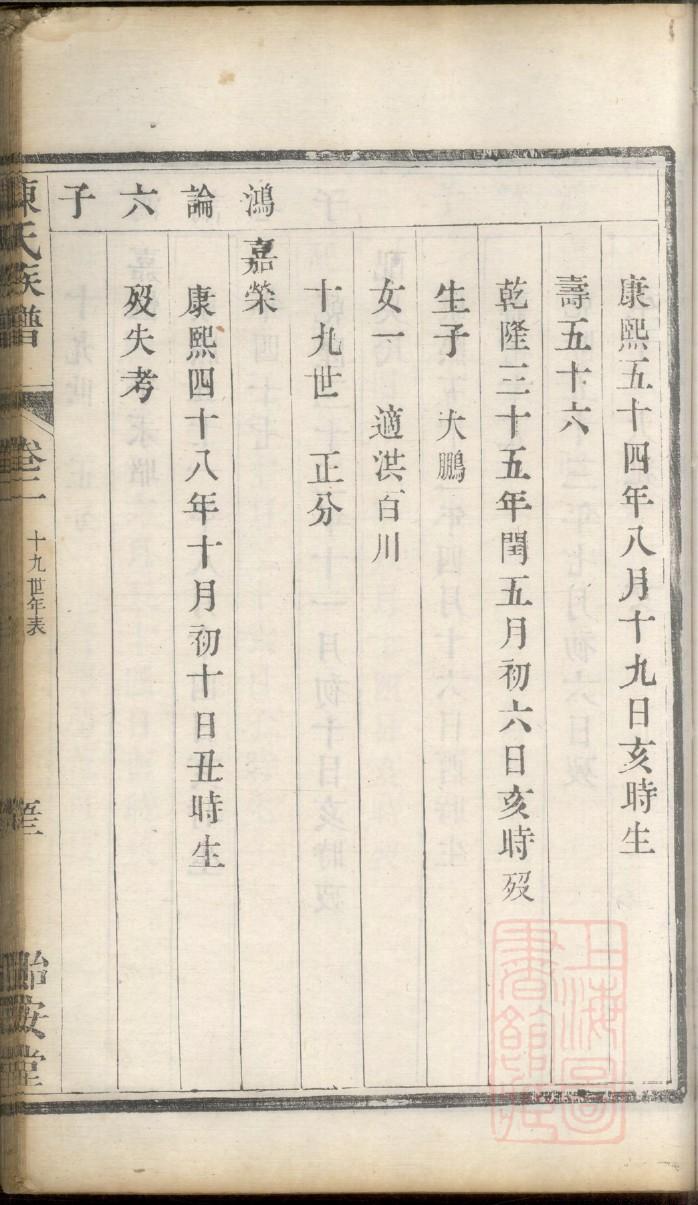 康熙五十四年八月十九日亥時生
壽五十六
乾隆三十五年閏五月初六日亥時歿
生子 大鵬
女一 適洪百川
十九世 正分
鴻論六子
嘉榮
康熙四十八年十月初十日丑時生
歿失考
陳氏族譜
卷二
十九世年表
怡安堂
上海圖書館藏